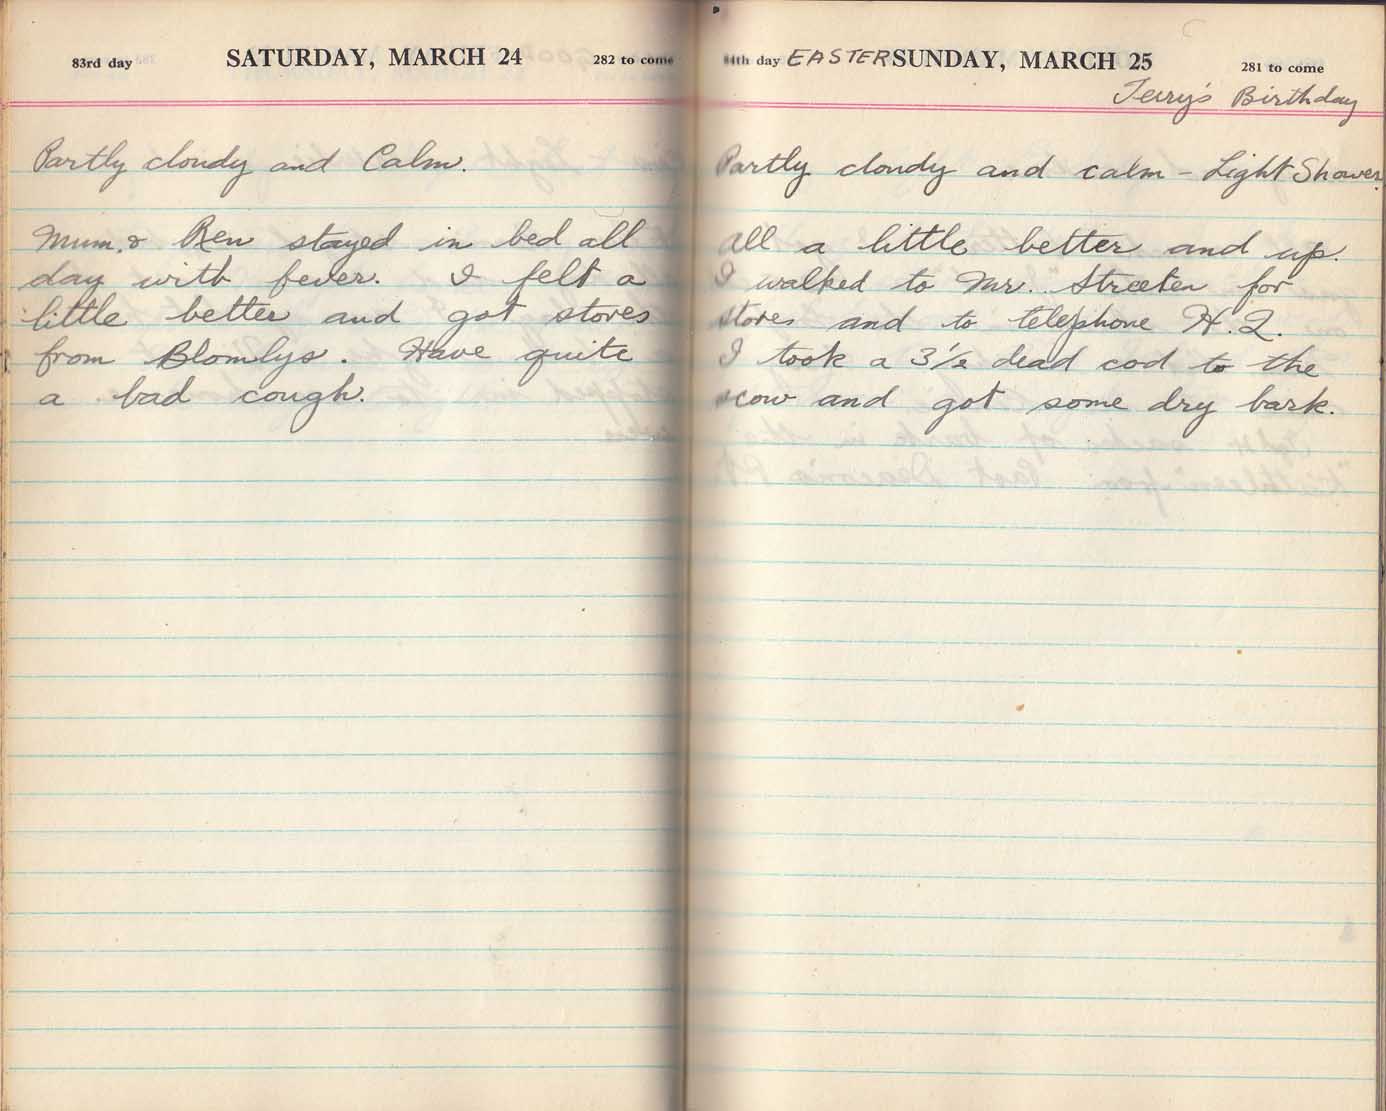 83rd day SATURDAY, MARCH 24 282 to come
Partly cloudy and Calm.
Mum. & Ben stayed in bed all
day with fever. I felt a
little better and got stores
from Blomlys. Have quite
a bad cough.
84th day EASTER SUNDAY, MARCH 25 281 to come
Terry's Birthday
Partly cloudy and calm - Light Shower.
All a little better and up.
I walked to Mr. Streeten for
stores and to telephone H.Q.
I took a 3½ dead cod to the
scow and got some dry bark.